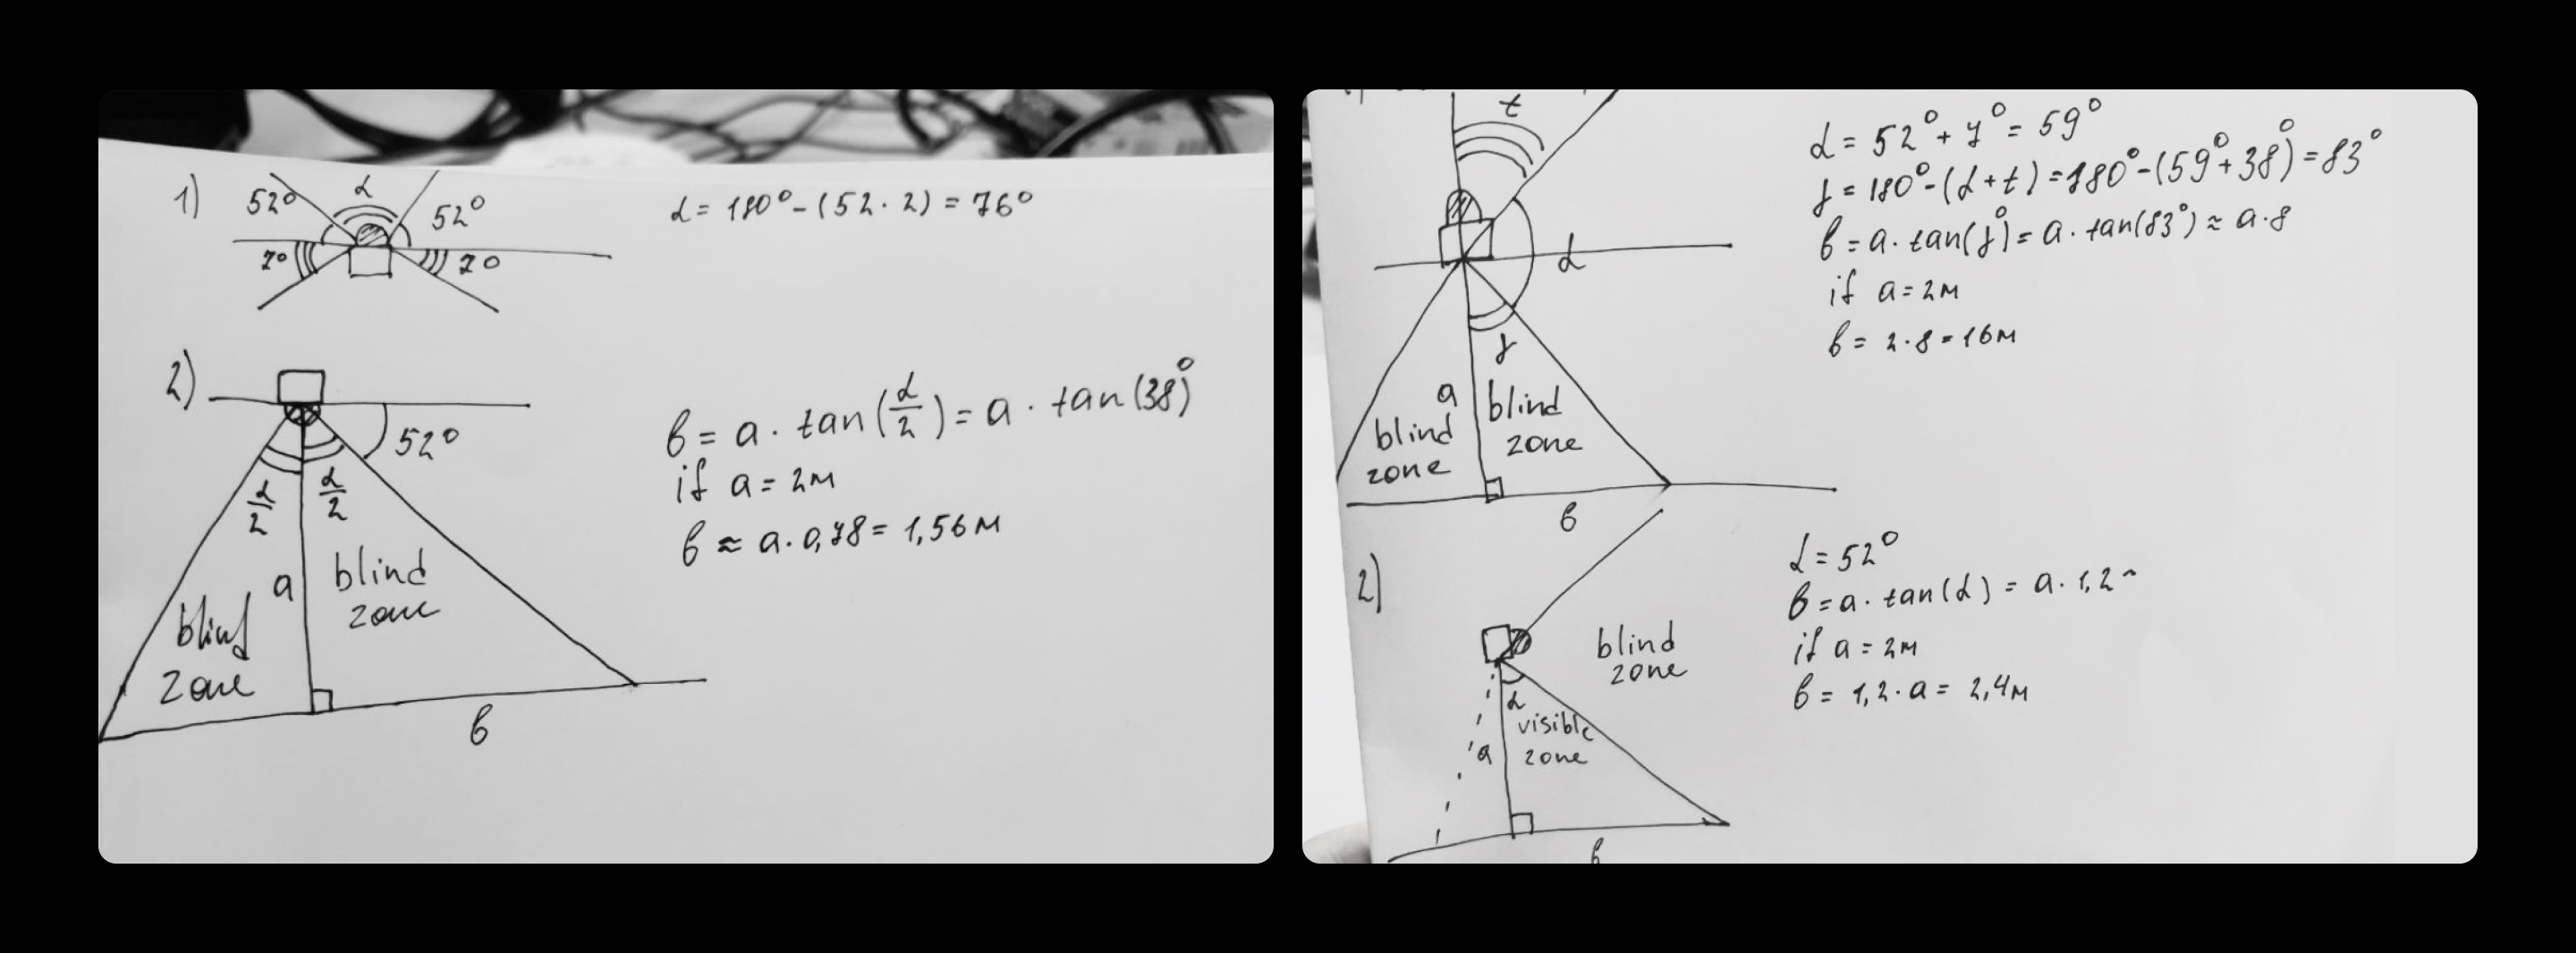 1)
52°
α
52°
7°
7°
α = 180° - (52 · 2) = 76°
2)
52°
α/2
α/2
a
blind
zone
blind
zone
в
в = a · tan(α/2) = a · tan(38°)
if a = 2м
в ≈ a · 0,78 = 1,56 м
t
α
γ
a
blind
zone
blind
zone
в
α = 52° + 7° = 59°
γ = 180° - (α + t) = 180° - (59° + 38°) = 83°
в = a · tan(γ) = a · tan(83°) ≈ a · 8
if a = 2м
в = 2 · 8 = 16м
2)
blind
zone
α
visible
zone
a
в
α = 52°
в = a · tan(α) = a · 1,2
if a = 2м
в = 1,2 · a = 2,4м